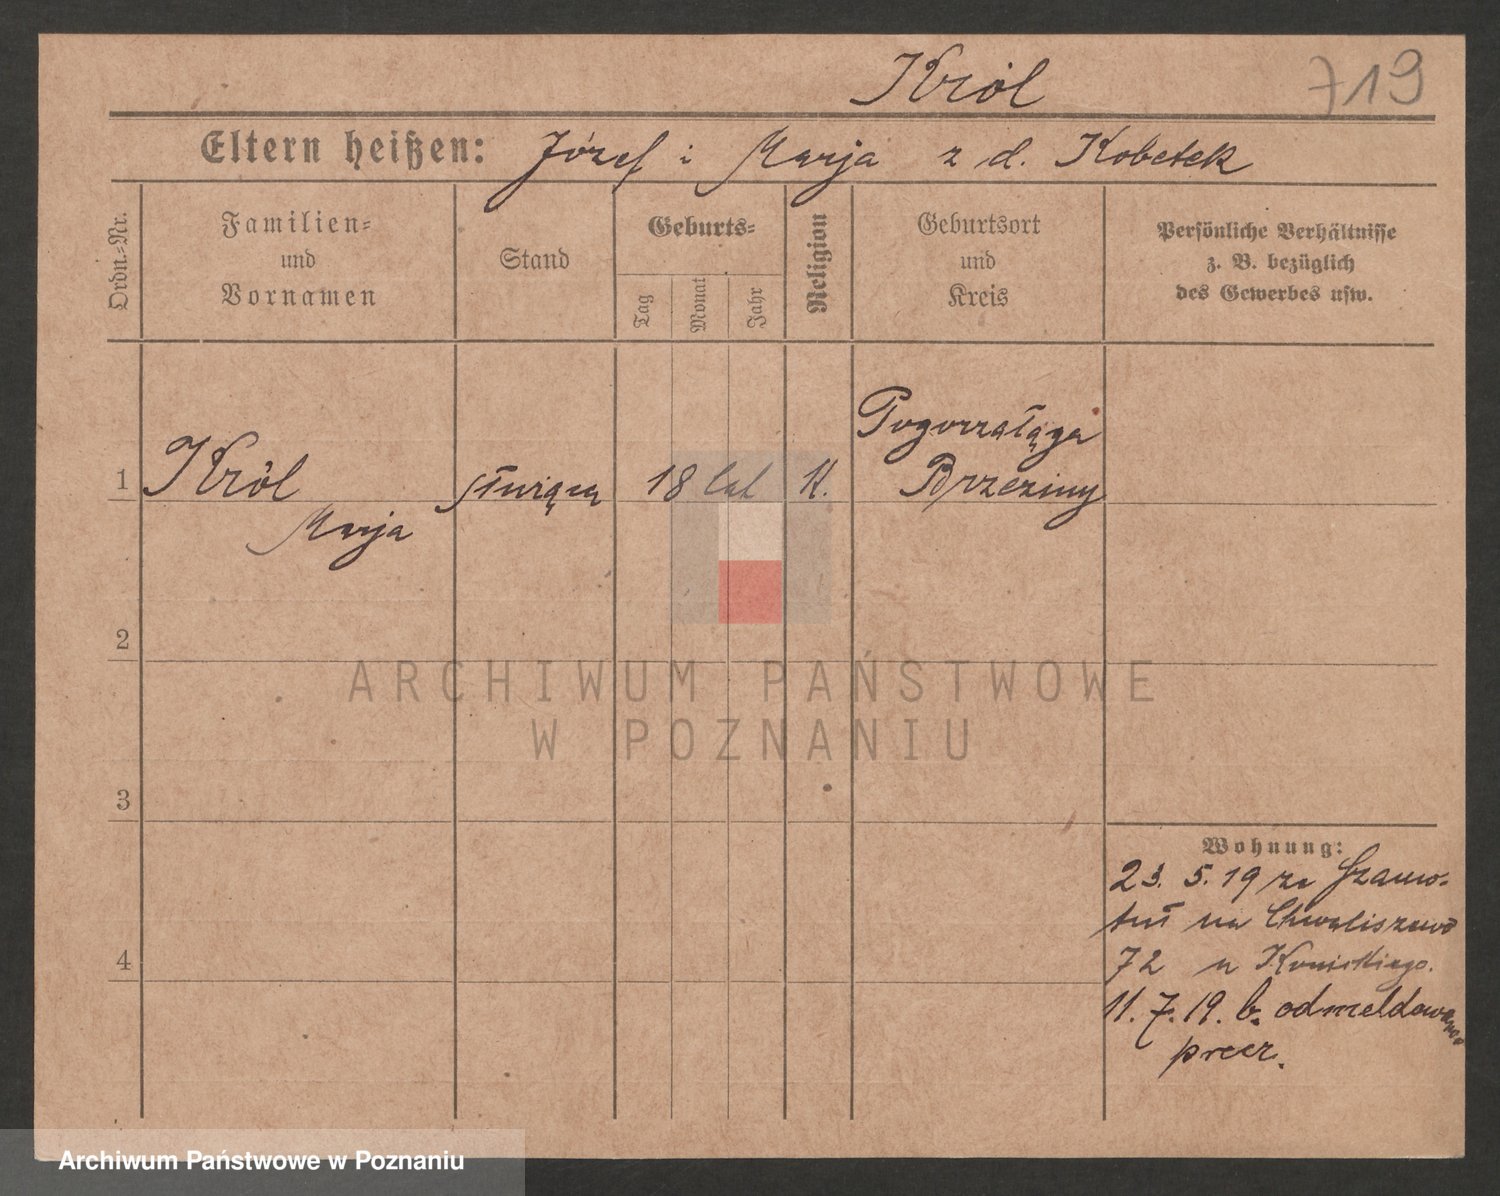 Król
719
Eltern heißen: Józef i Marja z d. Kobetek
Ordn.-Nr.
Familien-
und
Vornamen
Stand
Geburts-
Tag
Monat
Jahr
Religion
Geburtsort
und
Kreis
Persönliche Verhältnisse
z. B. bezüglich
des Gewerbes usw.
1
Król
Marja
służąca
18 lat
K.
Brzeziny
2
3
4
ARCHIWUM PAŃSTWOWE
W POZNANIU
Wohnung:
23. 5. 19 ze Szamo-
tuł na Chwaliszewo
72 u
11. 7. 19. b. odmeldowano
precz.
Archiwum Państwowe w Poznaniu